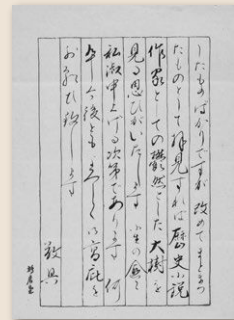 したものばかりですが 改めてまとまつ
たものとして拝見すれば 歴史小説
作家としての欝然とした大樹を
見る思ひがいたします 小生の愈々
私淑申上げる次第であります 何
卒 今後ともよろしく御高庇を
お願ひ致します
敬具